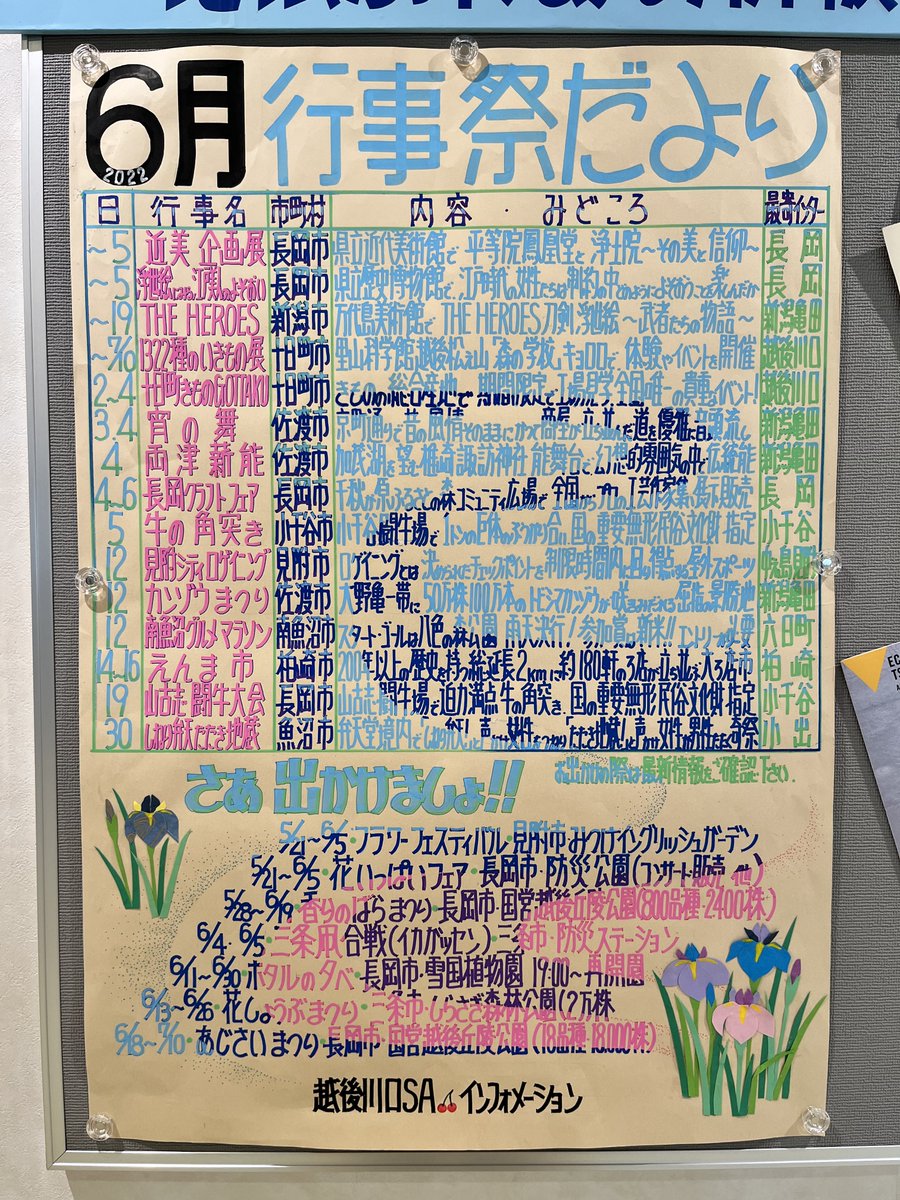 6月行事祭だより
2022
日 行事名 市町村 内容・みどころ 最寄インター
~5 近美 企画展 長岡市 県立近代美術館で 平等院鳳凰堂と浄土院~その美と信仰~ 長岡
~5 長岡市 県立歴史博物館で、江戸時代の女性たちは制約の中どのようによそおうことを楽しんだか 長岡
~19 THE HEROES 新潟市 万代島美術館で THE HEROES 刀剣、浮世絵~武者たちの物語~ 新潟亀田
~7/10 1322種のいきもの展 十日町市 里山科学館越後松之山「森の学校」キョロロで、体験やイベントを開催 越後川口
2~4 十日町きものGOTTAKU 十日町市 期間限定で 工場見学 全国唯一の貴重なイベント! 越後川口
3.4 宵の舞 佐渡市 京町通りで昔の風情そのままに 道を優雅に 新潟亀田
4 両津薪能 佐渡市 加茂湖を望む椎崎諏訪神社能舞台で幻想的雰囲気の中で伝統能 新潟亀田
4~6 長岡クラフトフェア 長岡市 千秋が原ふるさとの森 コミュニティ広場で 全国から 展示販売 長岡
5 牛の角突き 小千谷市 小千谷闘牛場で 1トンの巨体のぶつかり合い、国の重要無形民俗文化財指定 小千谷
12 見附シティロゲイニング 見附市 ロゲイニングとは 決められたチェックポイントを制限時間内に 野外スポーツ 中之島見附
12 カンゾウまつり 佐渡市 大野亀一帯に50万株100万本のトビシマカンゾウが咲きみだれる 屈指の景勝地 新潟亀田
12 南魚沼グルメマラソン 南魚沼市 スタート・ゴールは八色の森公園 雨天決行! 参加賞は新米!! エントリーが必要 六日町
14~16 えんま市 柏崎市 200年以上の歴史を持つ総延長2kmに約180軒 柏崎
19 山古志闘牛大会 長岡市 山古志闘牛場で迫力満点牛の角突き、国の重要無形民俗文化財指定 小千谷
30 しねり弁天たたき地蔵 魚沼市 弁天堂境内で「しねり弁天」 「たたき地蔵」 奇祭 小出
さあ 出かけましょ!! お出かけの際は最新情報をご確認下さい.
5/21~6/5・フラワーフェスティバル・見附市みつけイングリッシュガーデン
5/21~6/5・花いっぱいフェア・長岡市・防災公園(コンサート販売 他)
5/28~6/19・香りのばらまつり・長岡市・国営越後丘陵公園(800品種・2400株)
6/4・6/5・三条凧合戦(イカガッセン)・三条市・防災ステーション
6/11~6/30・ホタルの夕べ・長岡市・雪国植物園 19:00~再開園
6/13~6/26・花しょうぶまつり・三条市・しらさぎ森林公園(2万株
6/18~7/10・あじさいまつり・長岡市・国営越後丘陵公園(18品種・18,000株)
越後川口SA インフォメーション